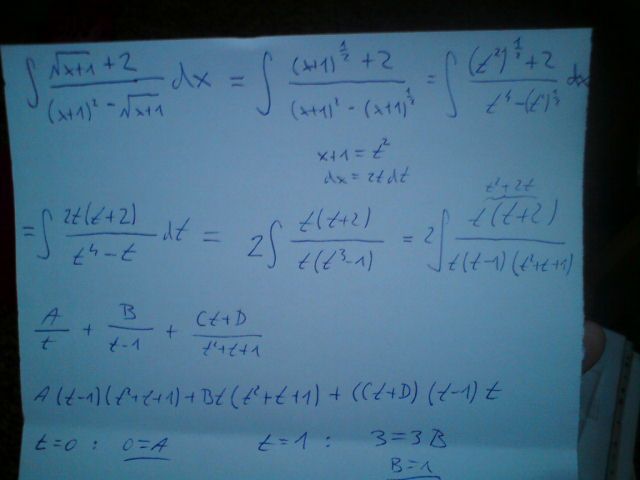 ∫ (√(x+1) + 2) / ((x+1)² - √(x+1)) dx = ∫ ((x+1)^(1/2) + 2) / ((x+1)² - (x+1)^(1/2)) = ∫ ((t²)^(1/2) + 2) / (t⁴ - (t²)^(1/2)) dx
x+1 = t²
dx = 2t dt
t²+2t
= ∫ 2t(t+2) / (t⁴ - t) dt = 2∫ t(t+2) / (t(t³-1)) = 2∫ t(t+2) / (t(t-1)(t²+t+1))
A/t + B/(t-1) + (Ct+D)/(t²+t+1)
A(t-1)(t²+t+1)+Bt(t²+t+1) + (Ct+D)(t-1)t
t=0 : 0=A t=1 : 3=3B
B=1